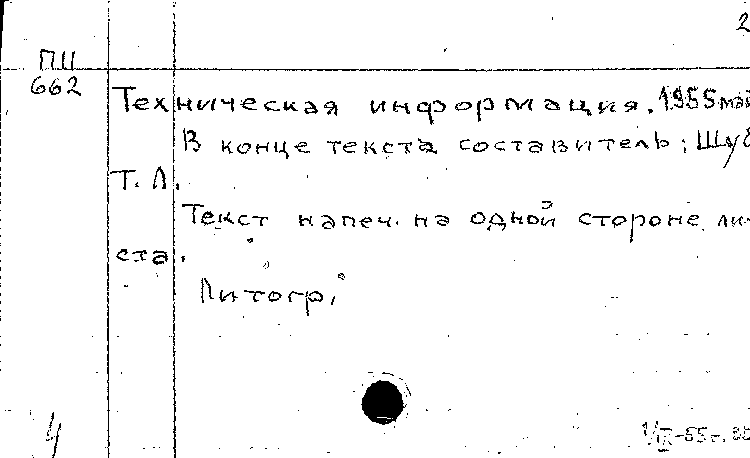 2
ПII
662
Техническая информация. 1955 май
В конце текста составитель: Шуб
Т. Л.
Текст напеч. на одной стороне ли-
ста.
Литогр.
4
1/IX-55г.